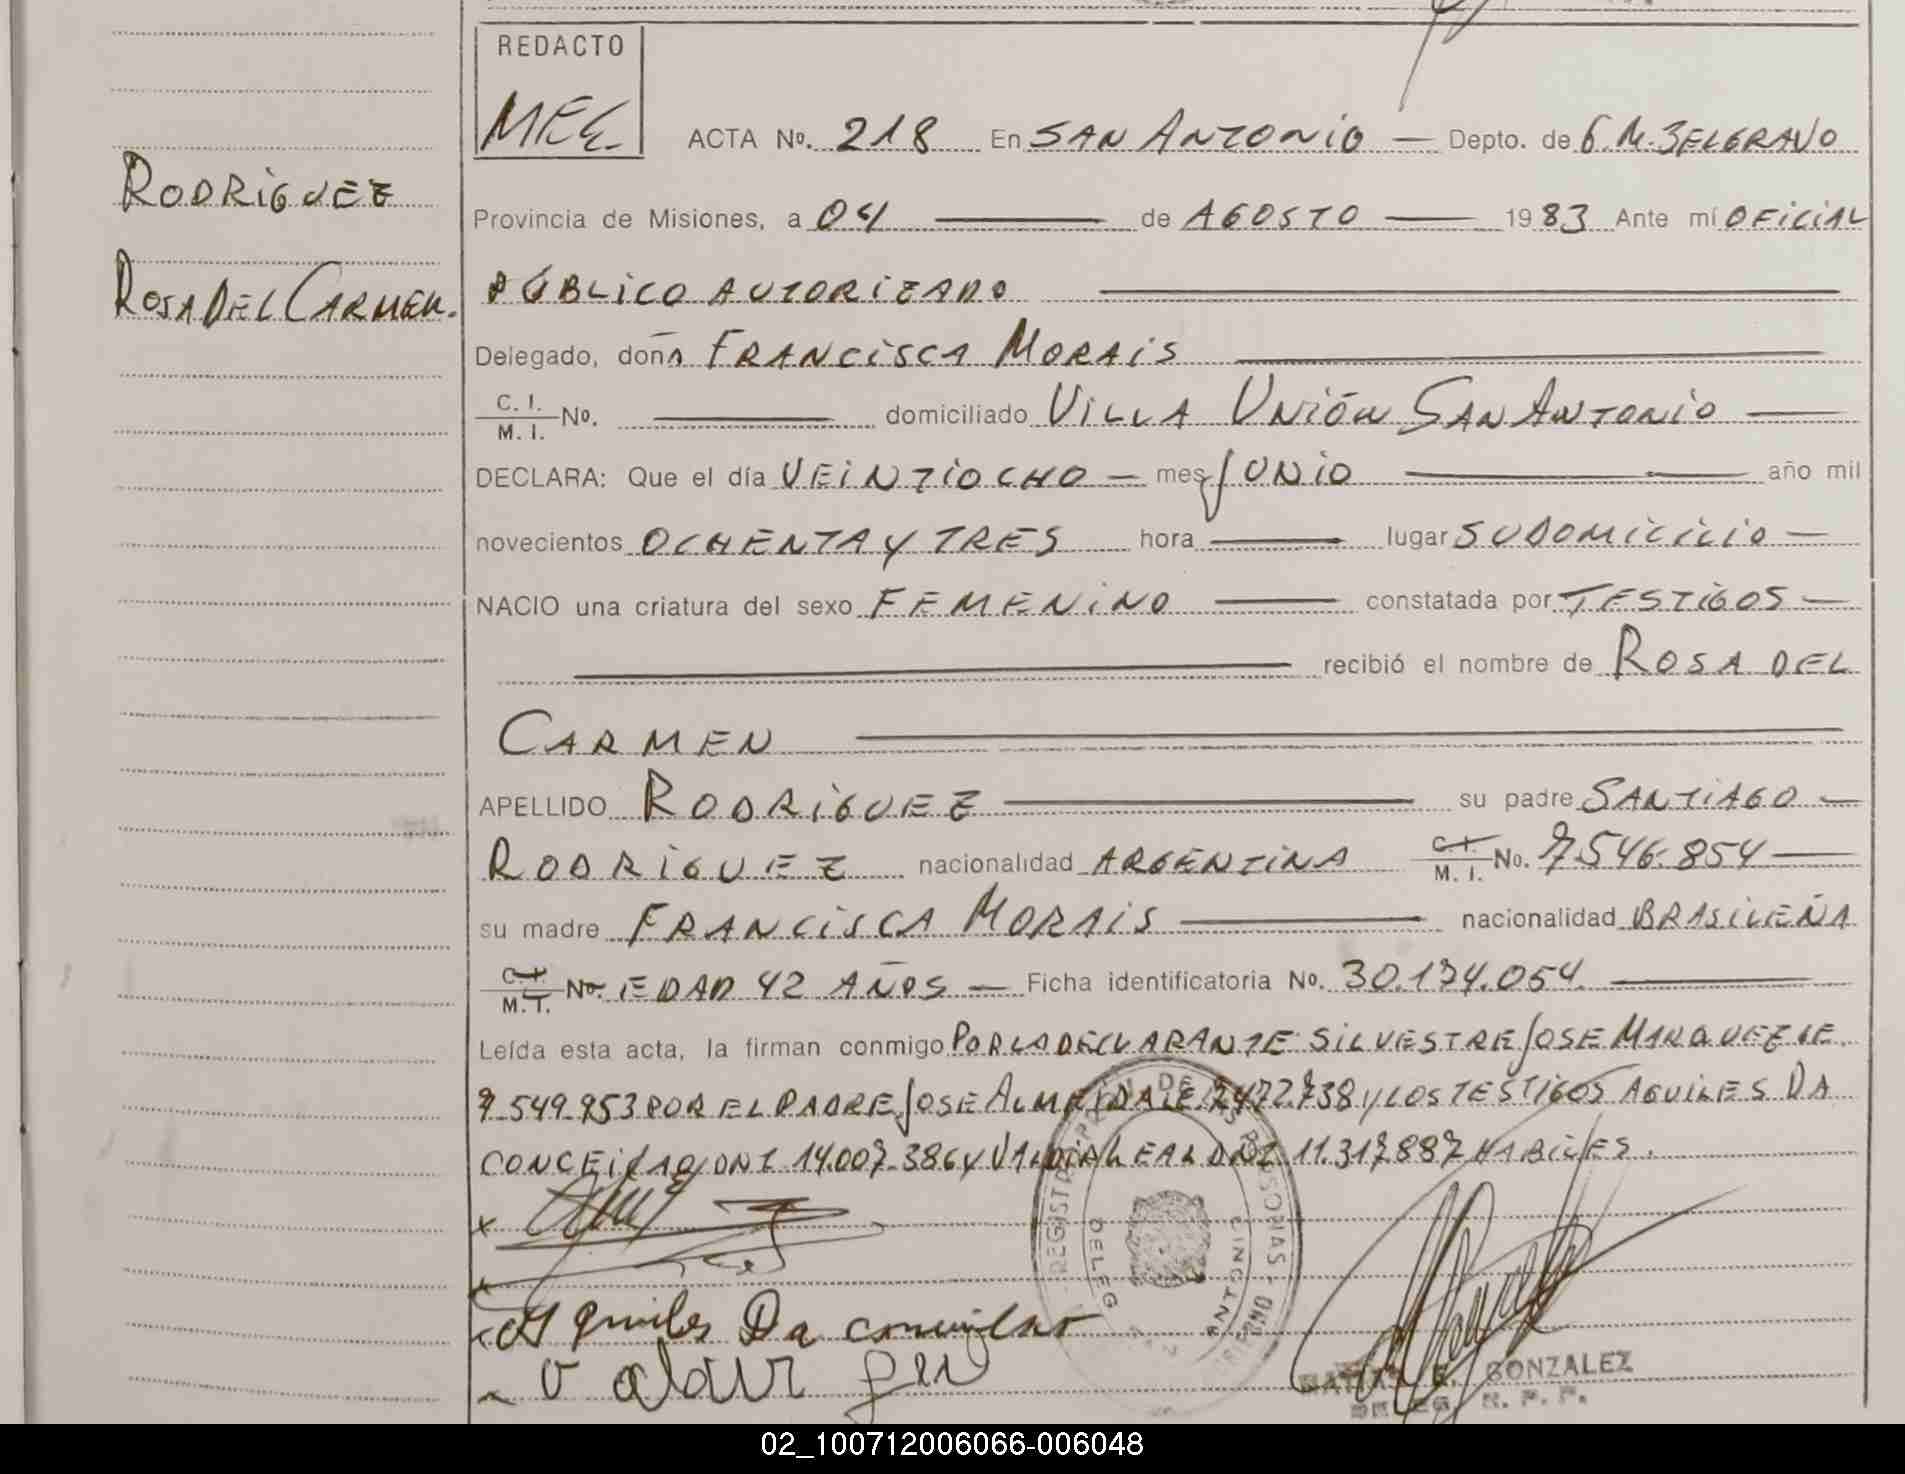 REDACTO
MEG
ACTA No. 218 En SAN ANTONIO — Depto. de G. M. BELGRANO
RODRIGUEZ
Provincia de Misiones, a 04 — de AGOSTO — 1983 Ante mí OFICIAL
ROSA DEL CARMEN.
PÚBLICO AUTORIZADO
Delegado, doña FRANCISCA MORAIS
C. I. M. I. No. — domiciliado VILLA UNIÓN SAN ANTONIO —
DECLARA: Que el día VEINTIOCHO — mes JUNIO — año mil
novecientos OCHENTA Y TRES hora — lugar SU DOMICILIO —
NACIO una criatura del sexo FEMENINO — constatada por TESTIGOS —
— recibió el nombre de ROSA DEL
CARMEN
APELLIDO RODRIGUEZ — su padre SANTIAGO —
RODRIGUEZ nacionalidad ARGENTINA C. I. M. I. No. 7.546.854 —
su madre FRANCISCA MORAIS — nacionalidad BRASILEÑA
C. I. M. I. No. EDAD 42 AÑOS — Ficha identificatoria No. 30.134.054. —
Leída esta acta, la firman conmigo POR LA DECLARANTE SILVESTRE JOSE MARQUEZ LE.
7.549.953 POR EL PADRE JOSE ALMEIDA LE. 2472738 Y LOS TESTIGOS AQUILES DA
CONCEIÇAO DNI 14.007.386 Y VALDIR LEAL DNI 11.317887 HABILES.
REGISTRO DE LAS PERSONAS
DELEG ANTONIO
Aquiles Da
valdir
E. GONZALEZ
DELEG. R. P. P.
02_100712006066-006048